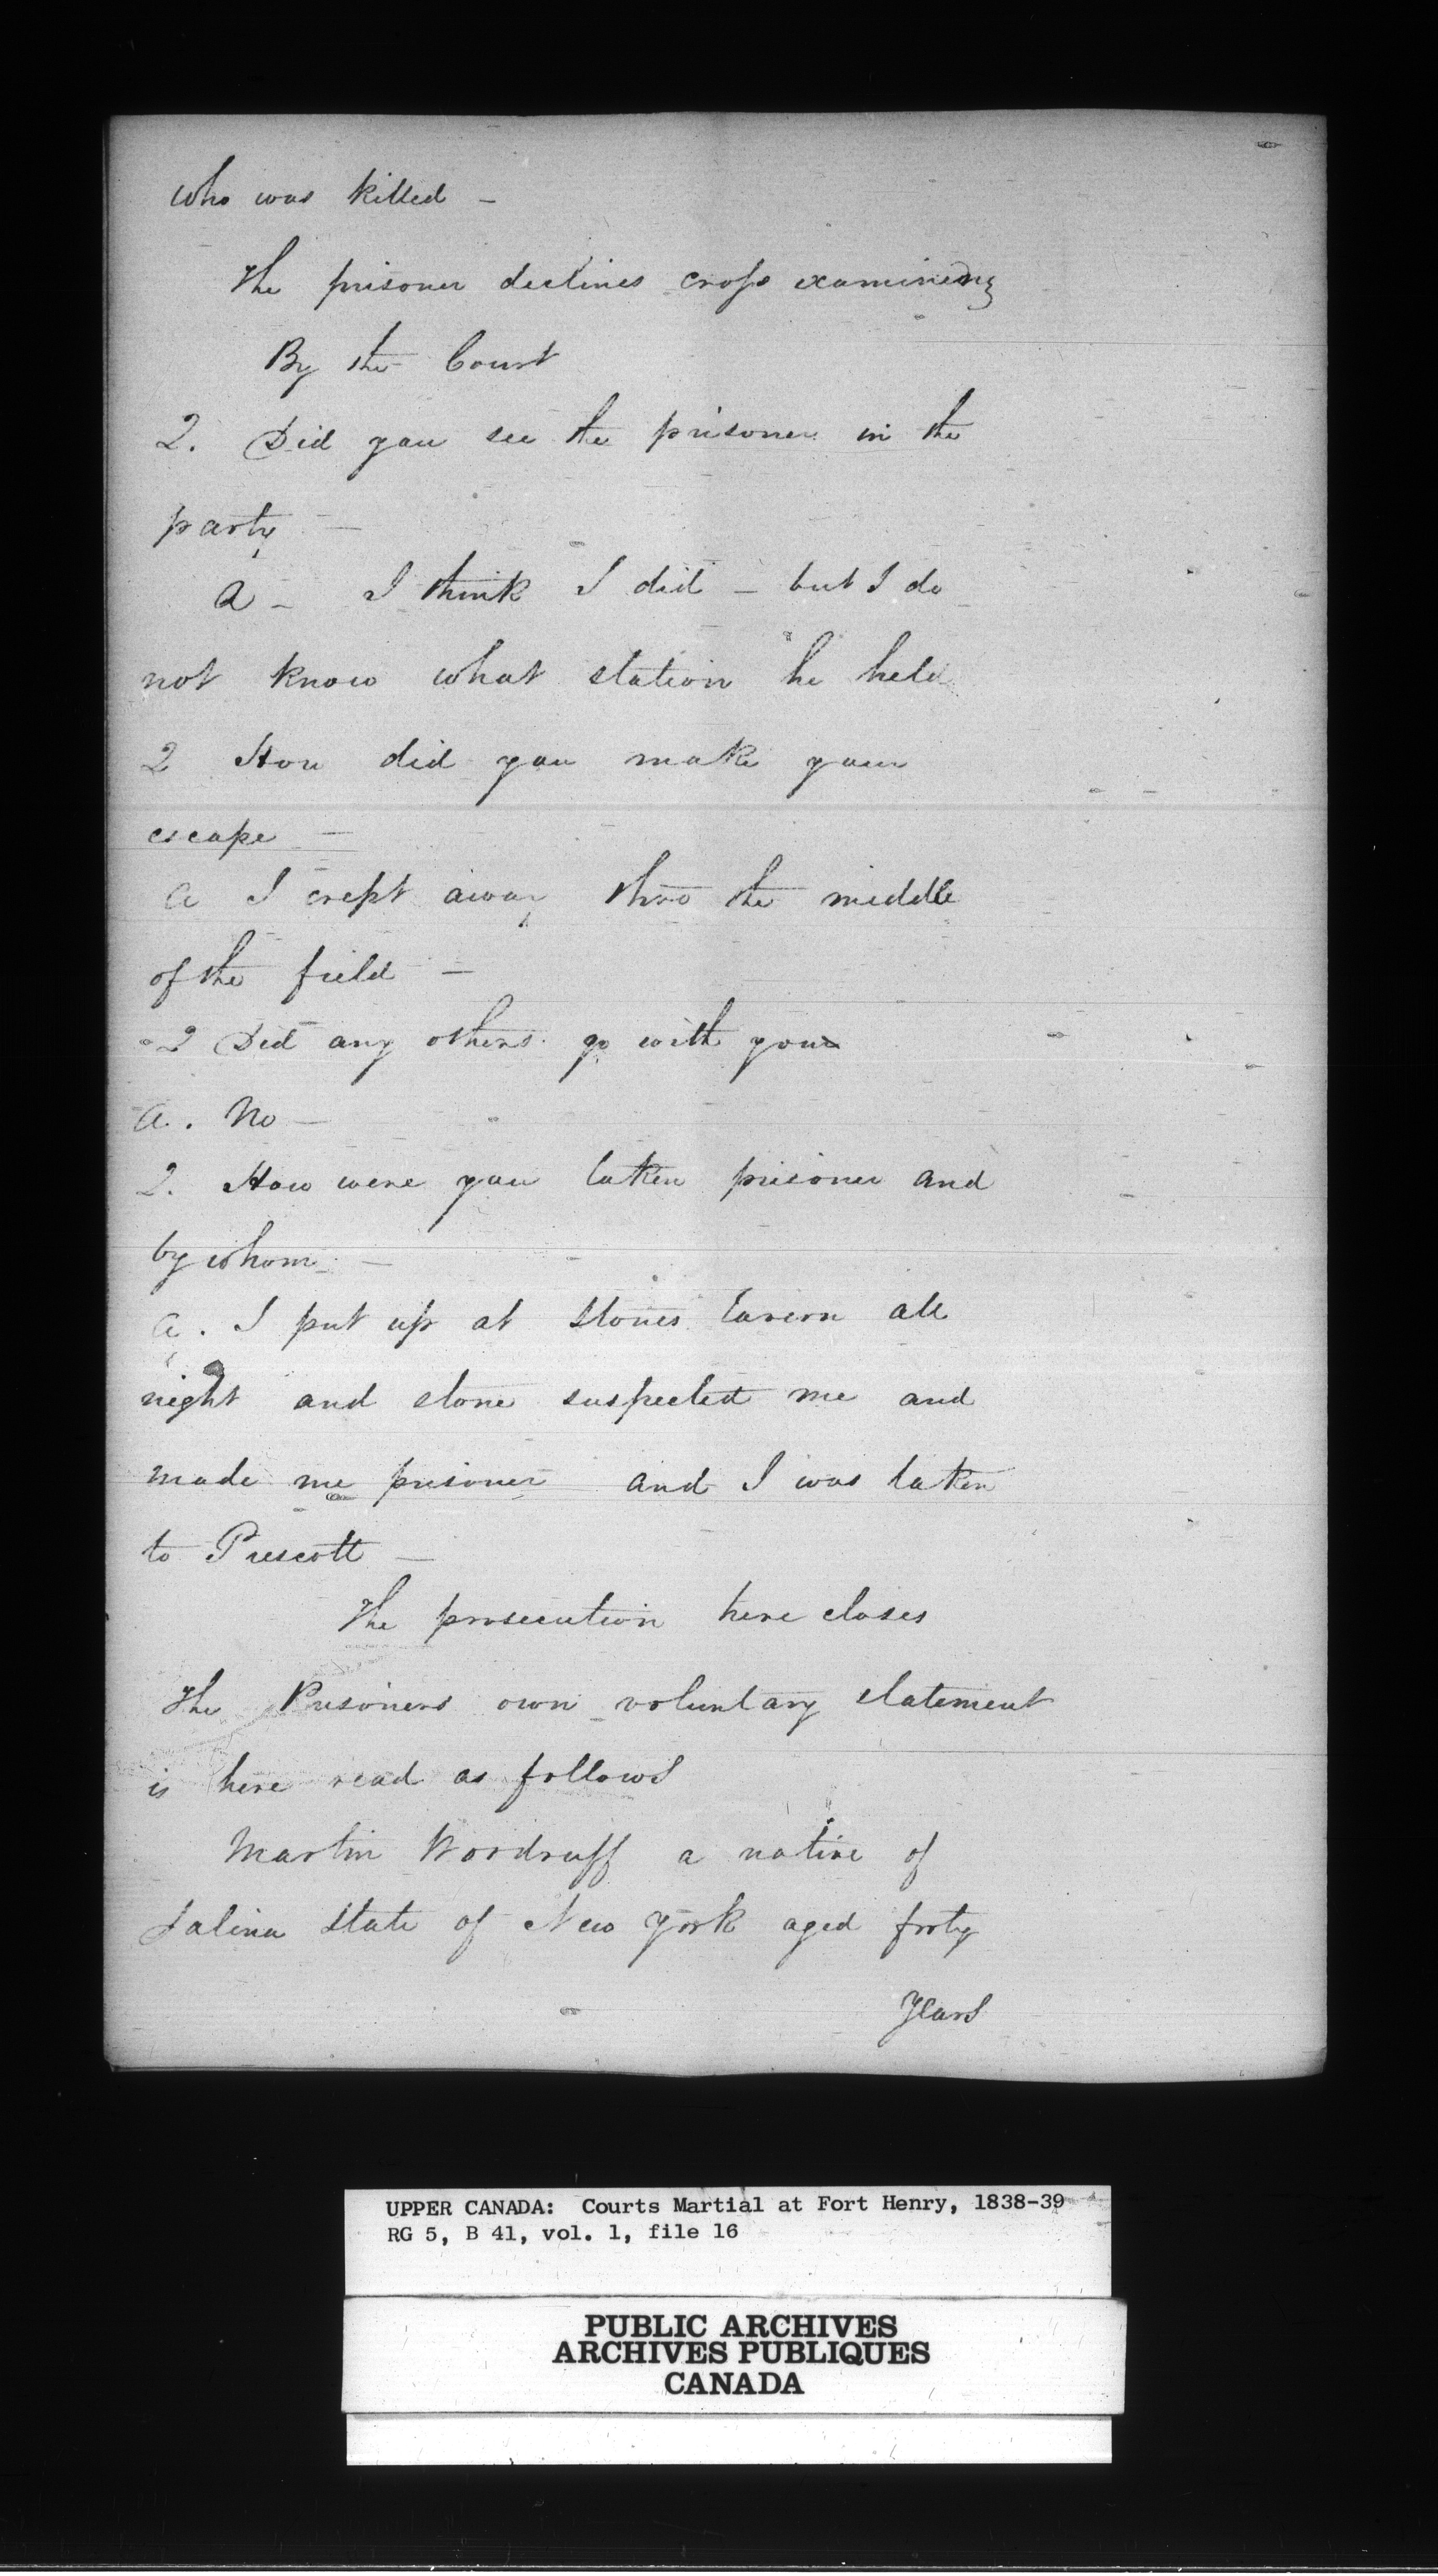 who was killed -
The prisoner declines cross examining
By the Court
Q. Did you see the prisoner in the
party -
A - I think I did - but I do
not know what station he held
Q How did you make your
escape -
A I crept away thro the middle
of the field -
Q Did any others go with you
A. No -
Q. How were you taken prisoner and
by whom -
A. I put up at Stones tavern all
night and stone suspected me and
made me prisoner and I was taken
to Prescott -
The prosecution here closes
The Prisoners own voluntary statement
is here read as follows
Martin Woodruff a native of
Salina State of New York aged forty
Years
UPPER CANADA: Courts Martial at Fort Henry, 1838-39
RG 5, B 41, vol. 1, file 16
PUBLIC ARCHIVES
ARCHIVES PUBLIQUES
CANADA